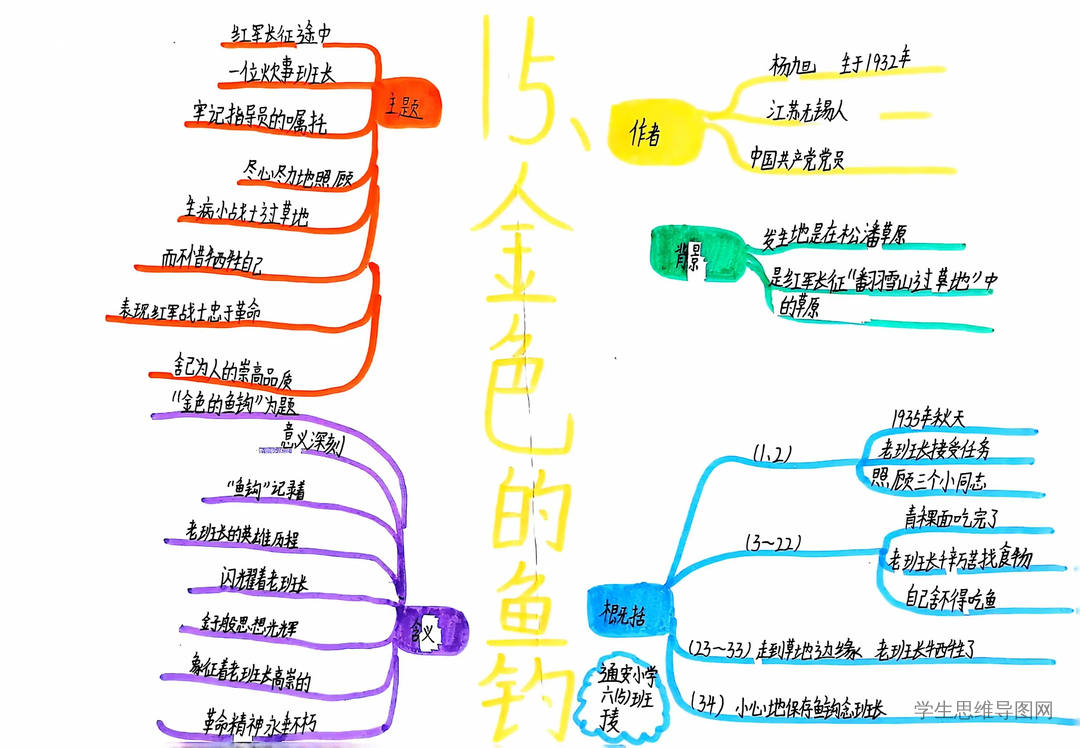 15、金色的鱼钓
主题
红军长征途中
一位炊事班长
牢记指导员的嘱托
尽心尽力地照顾
生病小战士过草地
而不惜牺牲自己
表现红军战士忠于革命
舍己为人的崇高品质
作者
杨旭 生于1932年
江苏无锡人
中国共产党党员
背景
发生地是在松潘草原
是红军长征“翻羽雪山过草地”中
的草原
含义
“金色的鱼钩”为题
意义深刻
“鱼钩”记录着
老班长的英雄历程
闪耀着老班长
金子般思想光辉
象征着老班长高崇的
革命精神永垂不朽
概括
(1、2)
1935年秋天
老班长接受任务
照顾三个小同志
(3~22)
青稞面吃完了
老班长千辛万苦找食物
自己舍不得吃鱼
(23~33)走到草地边缘 老班长牺牲了
(34) 小心地保存鱼钩念班长
通安小学
六(5)班王
学生思维导图网